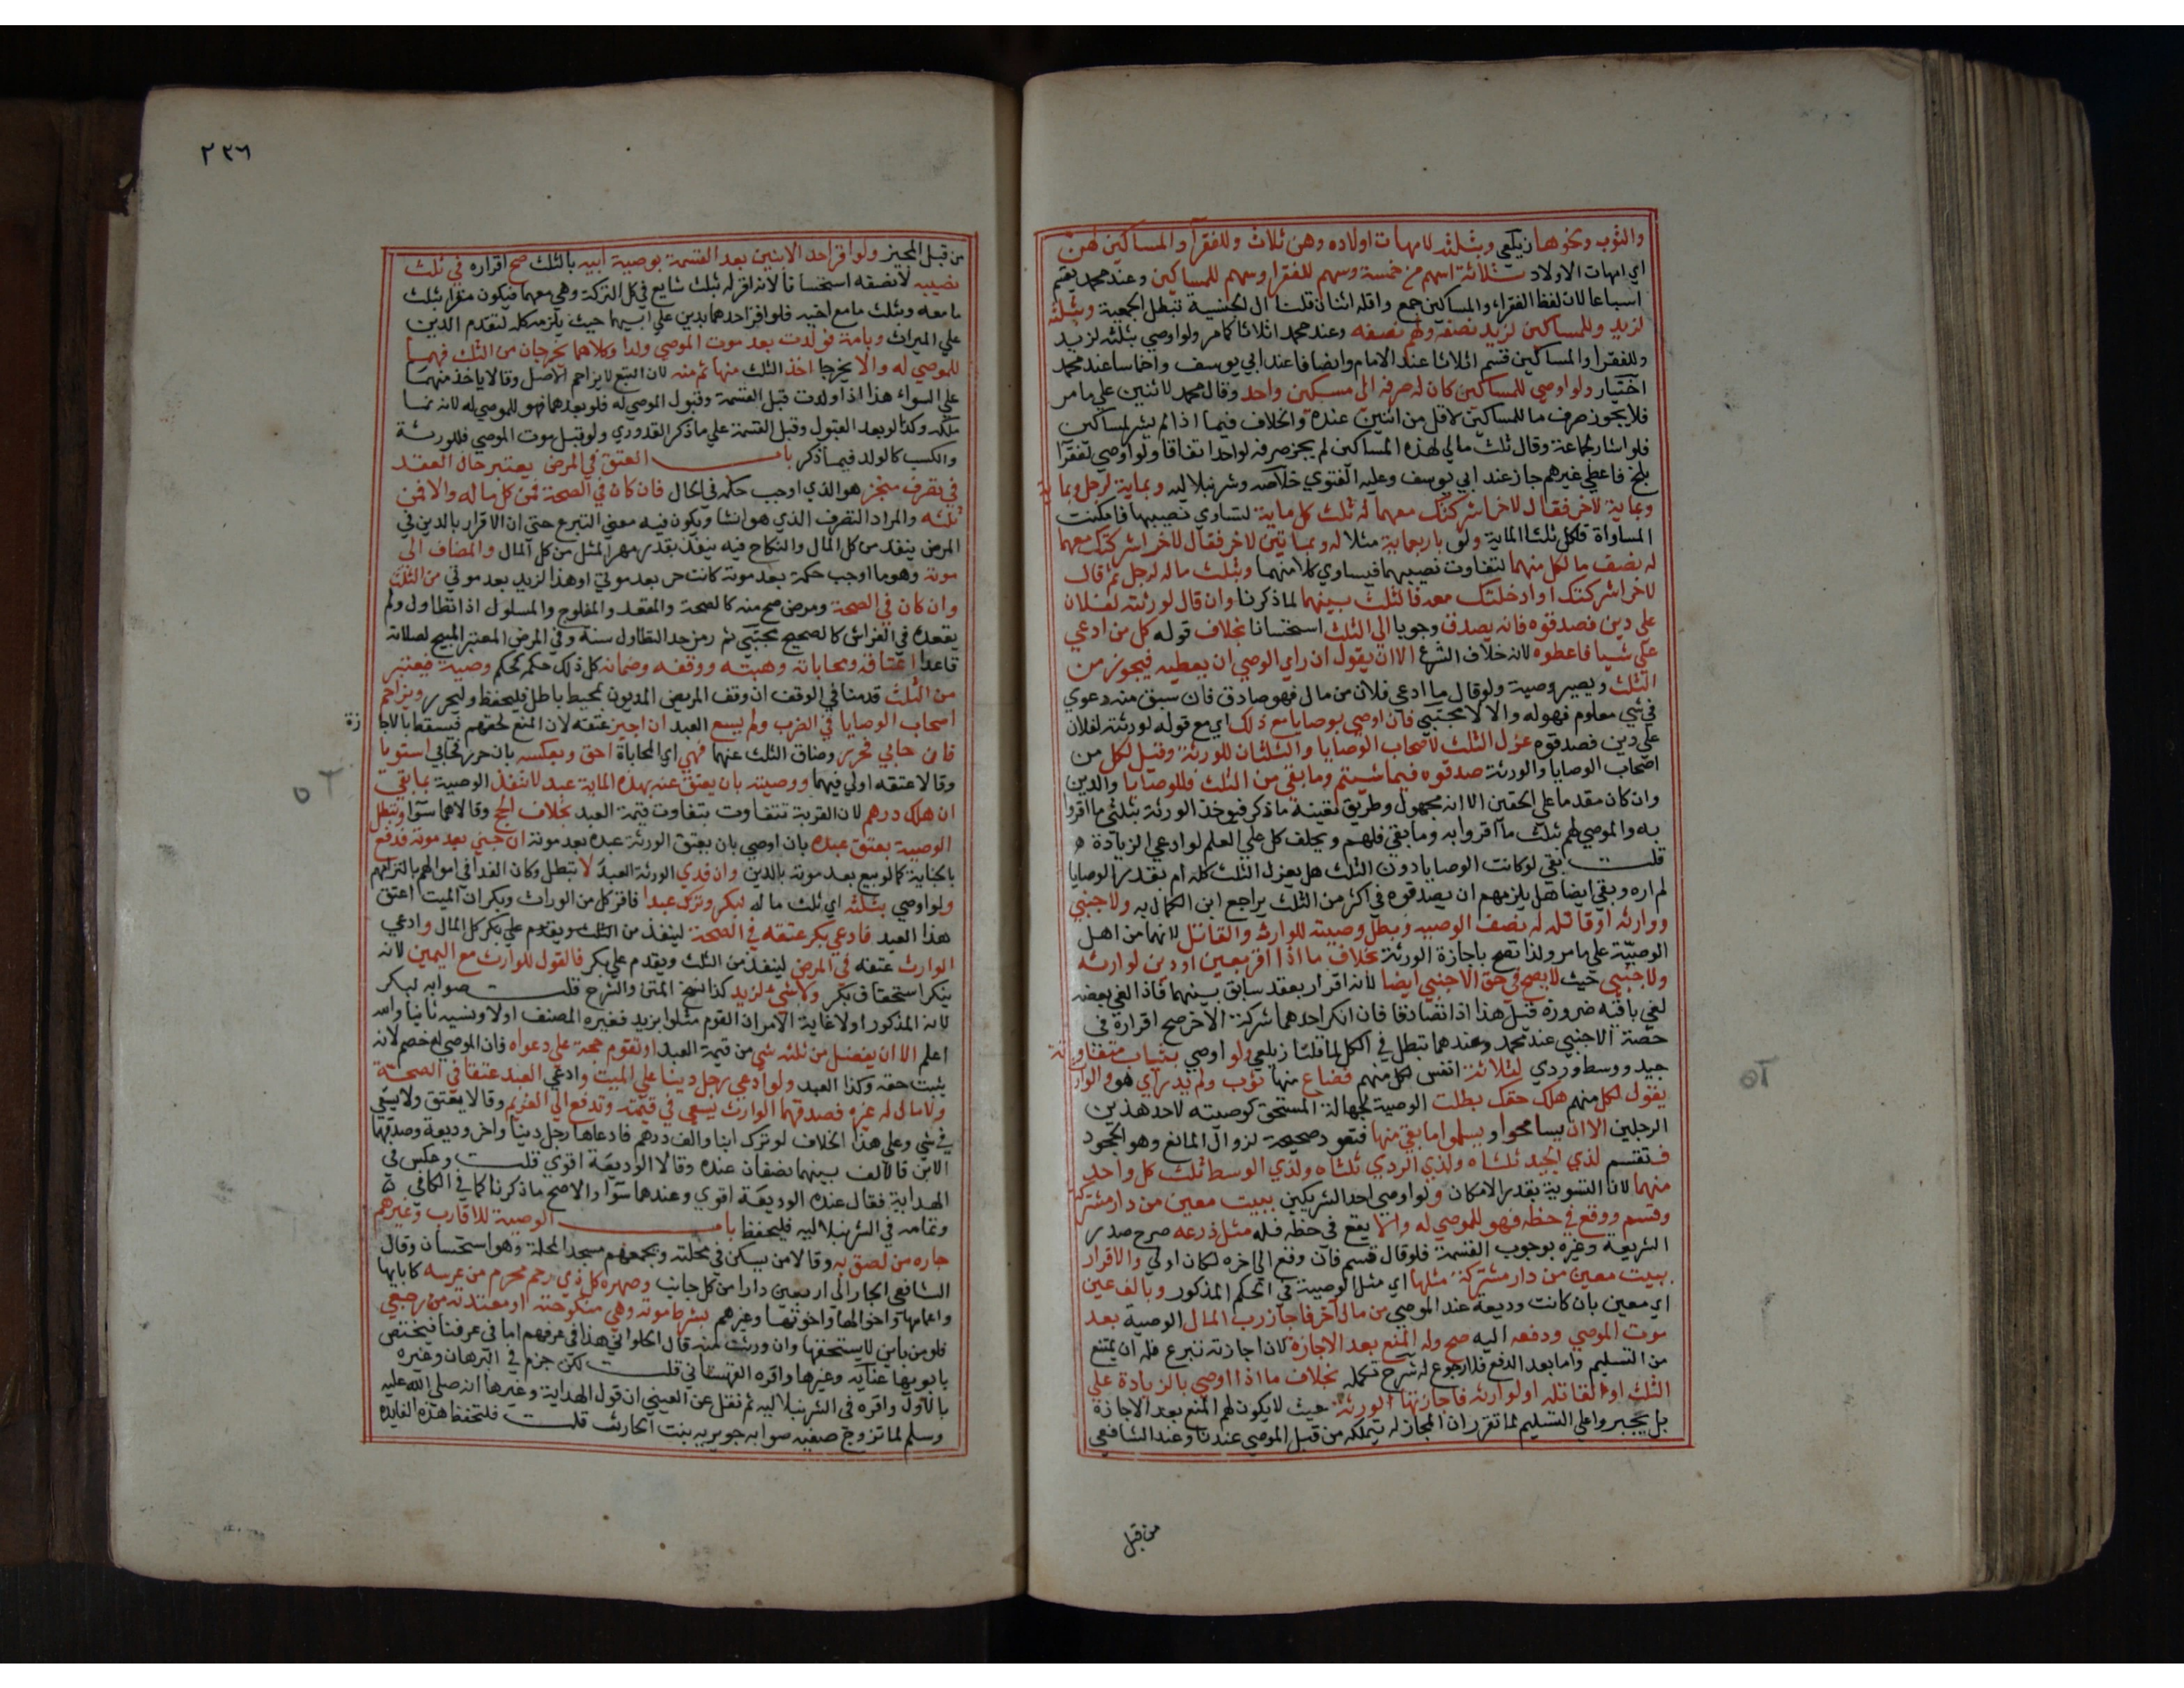 والثوب ونحوها زيلعي وبثلثه لامهات اولاده وهن ثلاث وللفقرا والمساكين لهن
اي امهات الاولاد ثلاثة اسهم من خمسة وسهم للفقرا وسهم للمساكين وعند محمد يقسم
اسباعا لان لفظ الفقراء والمساكين جمع واقله اثنان قلنا ال الجنسية تبطل الجمعية وبثلثه
لزيد وللمساكين لزيد نصفه ولهم نصفه وعند محمد اثلاثا كما مر ولو اوصي بثلثه لزيد
وللفقرا والمساكين قسم اثلاثا عند الامام وانصافا عند ابي يوسف واخماسا عند محمد
اختيار ولو اوصي للمساكين كان له صرفه الى مسكين واحد وقال محمد لاثنين علي ما مر
فلا يجوز صرف ما للمساكين لاقل من اثنين عنده والخلاف فيما اذا لم يشر لمساكين
فلو اشار لجماعة وقال ثلث مالي لهذه المساكين لم يجز صرفه لواحد اتفاقا ولو اوصي لفقرا
بلخ فاعطي غيرهم جاز عند ابي يوسف وعليه الفتوي خلاصه وشرنبلاليه وبماية لرجل وبماية
وبماية لاخر فقال لاخر اشركتك معهما له ثلث كل ماية لتساوي نصيبهما فامكنت
المساواة فلكل ثلثا الماية ولو باربعماية مثلا له وبماتين لاخر فقال لاخر اشركتك معهما
له نصف ما لكل منهما لتفاوت نصيبهما فيساوي كلا منهما وبثلث ماله لرجل ثم قال
لاخر اشركتك او ادخلتك معه فالثلث بينهما لما ذكرنا وان قال لورثته لفلان
علي دين فصدقوه فانه يصدق وجوبا الى الثلث استحسانا بخلاف قوله كل من ادعي
علي شيا فاعطوه لانه خلاف الشرع الا ان يقول ان راي الوصي ان يعطيه فيجوز من
الثلث ويصير وصية ولو قال ما ادعي فلان من مالي فهو صادق فان سبق منه دعوي
في شي معلوم فهو له والا لا مجتبي فان اوصي بوصايا مع ذلك اي مع قوله لورثته لفلان
علي دين فصدقوه عزل الثلث لاصحاب الوصايا والثلثان للورثة وقيل لكل من
اصحاب الوصايا والورثة صدقوه فيما شيتم وما بقي من الثلث فللوصايا والدين
وان كان مقدما علي الحقين الا انه مجهول وطريق تعيينه ما ذكر فيوخذ الورثة بثلثي ما اقروا
به والموصي لهم بثلث ما اقروا به وما بقي فلهم ويحلف كل علي العلم لو ادعي الزيادة
قلت بقي لو كانت الوصايا دون الثلث هل يعزل الثلث كله ام بقدر الوصايا
لم اره وبقي ايضا هل يلزمهم ان يصدقوه في اكثر من الثلث يراجع ابن الكمال به ولاجنبي
ووارثه او قاتله له نصف الوصيه وبطل وصيته للوارث والقاتل لانهما من اهل
الوصيّة علي ما مر ولذا تصح باجازة الورثة بخلاف ما اذا اقر بعين او دين لوارثه
ولاجنبي حيث لا يصح في حق الاجنبي ايضا لانه اقرار بعقد سابق بينهما فاذا الغي بعضه
لغي باقيه ضرورة قيل هذا اذا تصادقا فان انكر احدهما شركة الاخر صح اقراره في
حصة الاجنبي عند محمد وعندهما تبطل في الكل لما قلنا زيلعي ولو اوصي بثياب متفاوتة
جيد ووسط وردي لثلاثة انفس لكل منهم فضاع منها ثوب ولم يدر اي هو والوارث
يقول لكل منهم هلك حقك بطلت الوصية لجهالة المستحق كوصيته لاحد هذين
الرجلين الا ان يسامحوا ويسلموا ما بقي منها فتعود صحيحة لزوال المانع وهو الجحود
فتقسم لذي الجيد ثلثاه ولذي الردي ثلثاه ولذي الوسط ثلث كل واحد
منهما لان التسوية بقدر الامكان ولو اوصي احد الشريكين ببيت معين من دار مشتركة
وقسم ووقع في حظه فهو للموصي له والا يقع في حظه فله مثل ذرعه صرح صدر
الشريعة وغيره بوجوب القسمة فلو قال قسم فان وقع الى اخره لكان اولي والاقرار
ببيت معين من دار مشتركة مثلها اي مثل الوصية في الحكم المذكور وبالف عين
اي معين بان كانت وديعة عند الموصي من مال اخر فاجاز رب المال الوصية بعد
موت الموصي ودفعه اليه صح وله المنع بعد الاجازة لان اجازته تبرع فله ان يمتنع
من التسليم واما بعد الدفع فلا رجوع له شرح تكمله بخلاف ما اذا اوصي بالزيادة علي
الثلث او لقاتله او لوارثه فاجازتها الورثة حيث لا يكون لهم المنع بعد الاجازة
بل يجبروا علي التسليم لما تقرر ان المجاز له يتملكه من قبل الموصي عندنا وعند الشافعي
من قبل
٢٣٦
من قبل المجيز ولو اقر احد الابنين بعد القسمة بوصية ابيه بالثلث صح اقراره في ثلث
نصيبه لا نصفه استحسانا لانه اقر له بثلث شايع في كل التركة وهي معهما فيكون مقرا بثلث
ما معه وبثلث ما مع اخيه فلو اقر احدهما بدين علي ابيهما حيث يلزمه كله لتقدم الدين
علي الميراث وبامة فولدت بعد موت الموصي ولدا وكلاهما يخرجان من الثلث فهما
للموصي له والا يخرجا اخذ الثلث منها ثم منه لان التبع لا يزاحم الاصل وقالا ياخذ منهما
علي السواء هذا اذا ولدت قبل القسمة وقبول الموصي له فلو بعدهما فهو للموصي له لانه نما
ملكه وكذا لو بعد القبول وقبل القسمة علي ما ذكر القدوري ولو قبل موت الموصي فللورثة
والكسب كالولد فيما ذكر باب العتق في المرض يعتبر حال العقد
في تصرف منجز هو الذي اوجب حكمه في الحال فان كان في الصحة فمن كل ماله والا فمن
ثلثه والمراد التصرف الذي هو انشا ويكون فيه معني التبرع حتى ان الاقرار بالدين في
المرض ينفذ من كل المال والنكاح فيه ينفذ بقدر مهر المثل من كل المال والمضاف الى
موته وهو ما اوجب حكمه بعد موته كانت حر بعد موتي او هذا لزيد بعد موتي من الثلث
وان كان في الصحة ومرض صح منه كالصحة والمقعد والمفلوج والمسلول اذا تطاول ولم
يقعده في الفراش كالصحيح مجتبي ثم رمز حد التطاول سنة وفي المرض المعتبر المبيح لصلاته
قاعدا اعتاقه ومحاباته وهبته ووقفه وضمانه كل ذلك حكمه كحكم وصية فيعتبر
من الثلث قدمنا في الوقف ان وقف المريض المديون بمحيط باطل فليحفظ وليحرر ويزاحم
اصحاب الوصايا في الضرب ولم يسع العبد ان اجيز عتقه لان المنع لحقهم فيسقط بالاجازة
فان حابي فحرر وضاق الثلث عنهما فهي اي المحاباة احق وبعكسه بان حرر فحابي استويا
وقالا عتقه اولي فيهما ووصيته بان يعتق عنه بهذه الماية عبد لا تنفذ الوصية بما بقي
ان هلك درهم لان القربة تتفاوت بتفاوت قيمة العبد بخلاف الحج وقالا هما سوا وتبطل
الوصية بعتق عبده بان اوصي بان يعتق الورثة عبده بعد موته ان جني بعد موته فدفع
بالجناية كما لو بيع بعد موته بالدين وان فدي الورثة العبد لا تبطل وكان الفدا في اموالهم بالتزامهم
ولو اوصي بثلثه اي ثلث ماله لبكر وترك عبدا فاقر كل من الوارث وبكر ان الميت اعتق
هذا العبد فادعي بكر عتقه في الصحة لينفذ من الثلث ويقدم علي بكر كل المال وادعي
الوارث عتقه في المرض لينفذ من الثلث ويقدم علي بكر فالقول للوارث مع اليمين لانه
ينكر استحقاق بكر ولا شي لزيد كذا نسخ المتن والشرح قلت صوابه لبكر
لانه المذكور اولا غاية الامر ان القوم مثلوا بزيد فغيره المصنف اولا ونسيه ثانيا والله
اعلم الا ان يفضل من ثلثه شي من قيمة العبد او تقوم حجة علي دعواه فان الموصي له خصم لانه
يثبت حقه وكذا العبد ولو ادعي رجل دينا علي الميت وادعي العبد عتقا في الصحة
ولا مال له غيره فصدقهما الوارث يسعي في قيمته وتدفع الى الغريم وقالا يعتق ولا يسعي
في شي وعلي هذا الخلاف لو ترك ابنا والف درهم فادعاها رجل دينا واخر وديعة وصدقهما
الابن فالالف بينهما نصفان عنده وقالا الوديعة اقوي قلت وعكس في
الهداية فقال عنده الوديعة اقوي وعندهما سوا والاصح ما ذكرنا كما في الكافي
وتمامه في الشرنبلاليه فليحفظ باب الوصية للاقارب وغيرهم
جاره من لصق به وقالا من يسكن في محلته ويجمعهم مسجد المحلة وهو استحسان وقال
الشافعي الجار الى اربعين دارا من كل جانب وصهره كل ذي رحم محرم من عرسه كابايها
واعمامها واخوالها واخوتها وغيرهم بشرط موته وهي منكوحته او معتدته من رجعي
فلو من باين لا يستحقها وان ورثت منه قال الحلواني هذا في عرفهم اما في عرفنا فيختص
بابويها عنايه وغيرها واقره القهستاني قلت لكن جزم في البرهان وغيره
بالاول واقره في الشرنبلاليه ثم نقل عن العيني ان قول الهداية وغيرها انه صلي الله عليه
وسلم لما تزوج صفيه صوابه جويريه بنت الحارث قلت فلتحفظ هذه الفايده